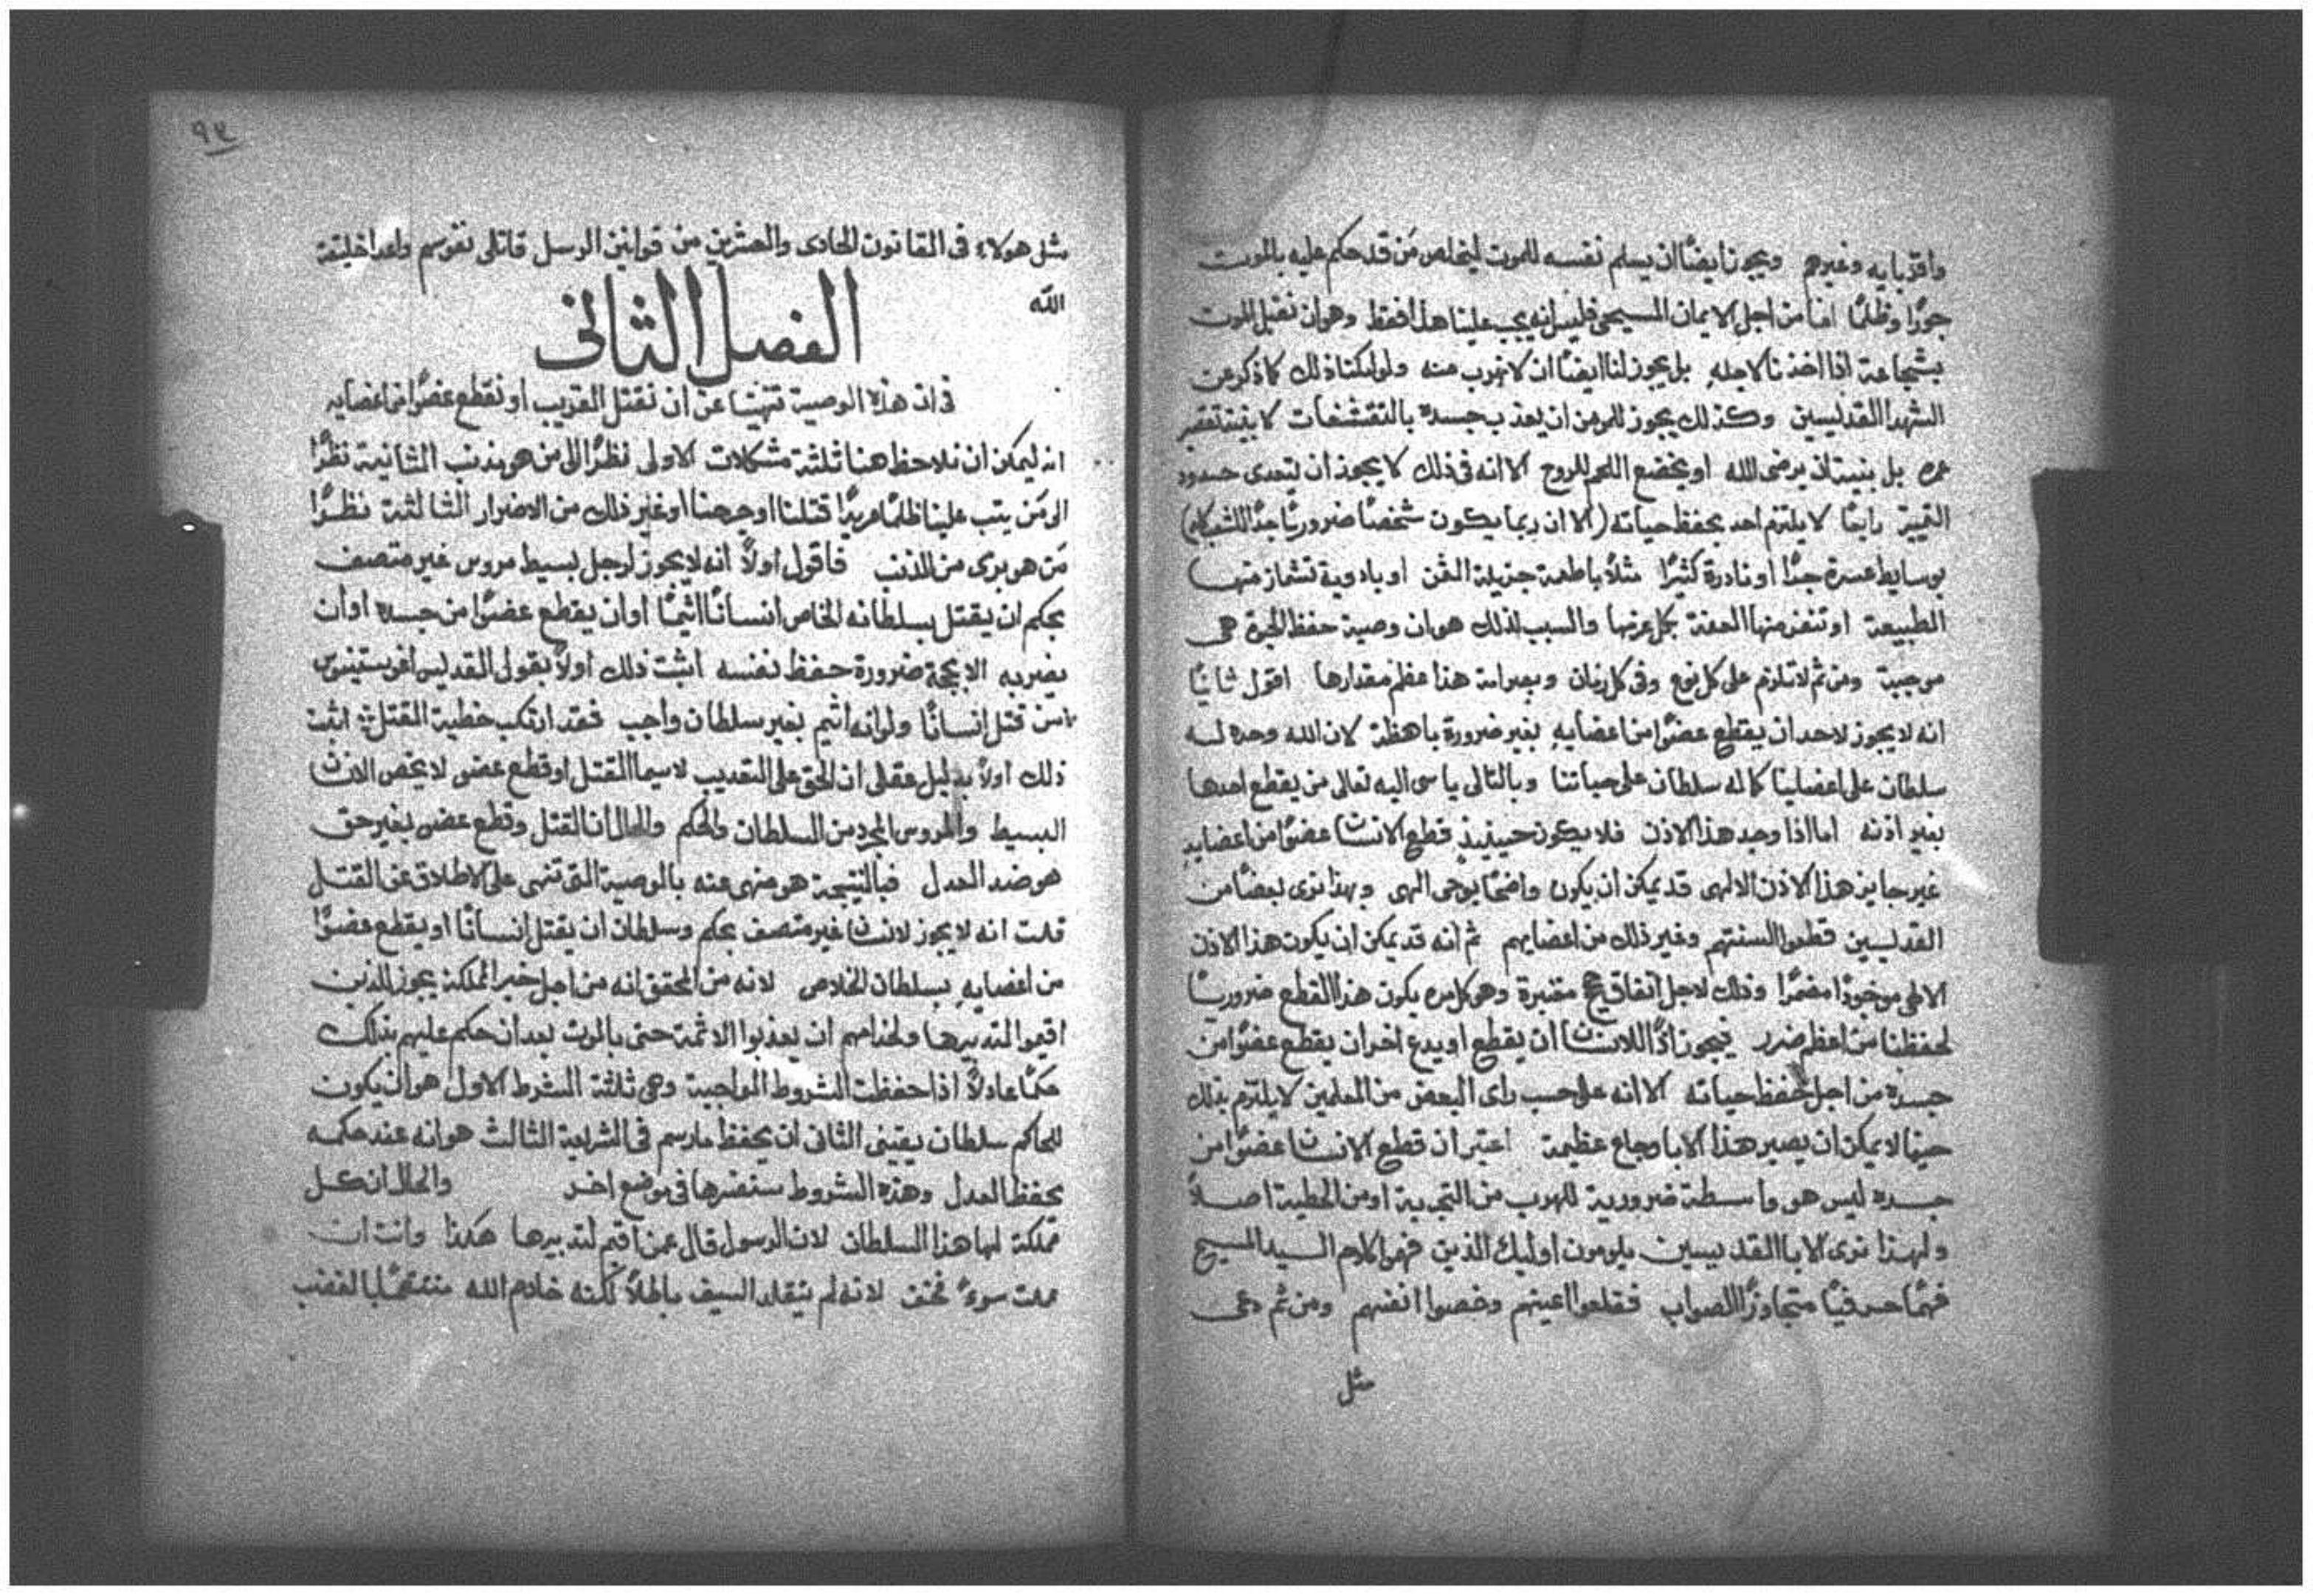 واقربايه وغيرهم ويجوز ايضًا ان يسلم نفسه للموت ليخلص مَن قد حكم عليه بالموت
جورًا وظلمًا اما من اجل الايمان المسيحي فليس انه يجب علينا هذا فقط وهو ان نقبل الموت
بشجاعة اذا اخذنا لاجله بل يجوز لنا ايضًا ان لا نهرب منه ولو امكننا ذلك كما ذكر عن
الشهدا القديسين وكذلك يجوز للمومن ان يعذب جسده بالتقشفات لا بنية تقصير
عمره بل بنية ان يرضى الله او يخضع اللحم للروح الا انه في ذلك لا يجوز ان يتعدى حدود
التمييز رابعًا لا يلتزم احد بحفظ حياته (الا ان ربما يكون شخصًا ضروريًا جدًا للشركة)
بوسايط عسرة جدًا او نادرة كثيرًا مثلًا باطعمة جزيلة الثمن او بادوية تشماز منها
الطبيعة او تنفر منها العفة بكل عرضها والسبب لذلك هو ان وصية حفظ الحيوة هي
موجبة ومن ثم لا تلزم على كل نوع وفي كل زمان وبصرامة هذا عظم مقدارها اقول ثانيًا
انه لا يجوز لاحد ان يقطع عضوًا من اعضايه بغير ضرورة باهظة لان الله وحده له
سلطان على اعضاينا كما له سلطان على حياتنا وبالتالي ياسى اليه تعالى من يقطع احدها
بغير اذنه اما اذا وجد هذا الاذن فلا يكون حينيذٍ قطع الانسان عضوًا من اعضايه
غير جايز هذا الاذن الالهي قد يمكن ان يكون واضحًا بوحى الهي وبهذا نرى بعضًا من
القديسين قطعوا السنتهم وغير ذلك من اعضايهم ثم انه قد يمكن ان يكون هذا الاذن
الالهي موجودًا مضمرًا وذلك لاجل اتفاق معتبرة وهو كل مره يكون هذا القطع ضروريًا
لحفظنا من اعظم ضرر فيجوز اذًا للانسان ان يقطع او يدع اخر ان يقطع عضوًا من
جسده من اجل حفظ حياته الا انه على حسب راى البعض من المعلمين لا يلتزم بذلك
حينما لا يمكن ان يصير هذا الا باوجاع عظيمة اعتبر ان قطع الانسان عضوًا من
جسده ليس هو واسطة ضرورية للهرب من التجربة او من الخطية اصلًا
ولهذا نرى الابا القديسين يلومون اوليك الذين فهموا كلام السيد المسيح
فهمًا حرفيًا متجاوزًا الصواب فقلعوا اعينهم وخصوا انفسهم ومن ثم دعى
مثل
٩٤
مثل هولاء في القانون الحادى والعشرين من قوانين الرسل قاتلى نفوسهم واعدا خليقة
الله
الفصل الثاني
في ان هذه الوصية تنهينا عن ان نقتل القريب او نقطع عضوًا من اعضايه
انه ليمكن ان نلاحظ هنا ثلثة مشكلات الاولى نظرًا الى من هو مذنب الثانية نظرًا
الى مَن يثب علينا ظلمًا مريدًا قتلنا او جرحنا او غير ذلك من الاضرار الثالثة نظرًا
مَن هو برى من الذنب فاقول اولًا انه لا يجوز لرجل بسيط مروس غير متصف
بحكم ان يقتل بسلطانه الخاص انسانًا اثيمًا او ان يقطع عضوًا من جسده او ان
يضربه الا بحجة ضرورة حفظ نفسه اثبت ذلك اولًا بقول القديس اغوستينوس
من قتل انسانًا ولو انه اثيم بغير سلطان واجب فقد ارتكب خطية القتل اثبت
ذلك اولًا بدليل عقلي ان الحق على التعذيب لا سيما القتل او قطع عضو لا يخص الانسان
البسيط والمروس المجرد من السلطان والحكم والحال ان القتل وقطع عضو بغير حق
هو ضد العدل فبالنتيجة هو منهى عنه بالوصية التي تنهى على الاطلاق عن القتل
قلت انه لا يجوز لانسان غير متصف بحكم وسلطان ان يقتل انسانًا او يقطع عضوًا
من اعضايه بسلطان الخلاص لانه من المحقق انه من اجل خير المملكة يجوز للذين
اقيموا لتدبيرها ولخدامهم ان يعذبوا الاثمة حتى بالموت بعد ان حكم عليهم بذلك
حكمًا عادلًا اذا حفظت الشروط الواجبة وهي ثلثة الشرط الاول هو ان يكون
للحاكم سلطان يقيني الثاني ان يحفظ ما رسم في الشرايع الثالث هو انه عند حكمه
يحفظ العدل وهذه الشروط سنفسرها في موضع اخر والحال ان كل
مملكة لها هذا السلطان لان الرسول قال عمن اقيم لتدبيرها هكذا وانت ان
عملت سوءً فخف لانه لم يتقلد السيف باطلًا لكنه خادم الله منتقمًا بالغضب